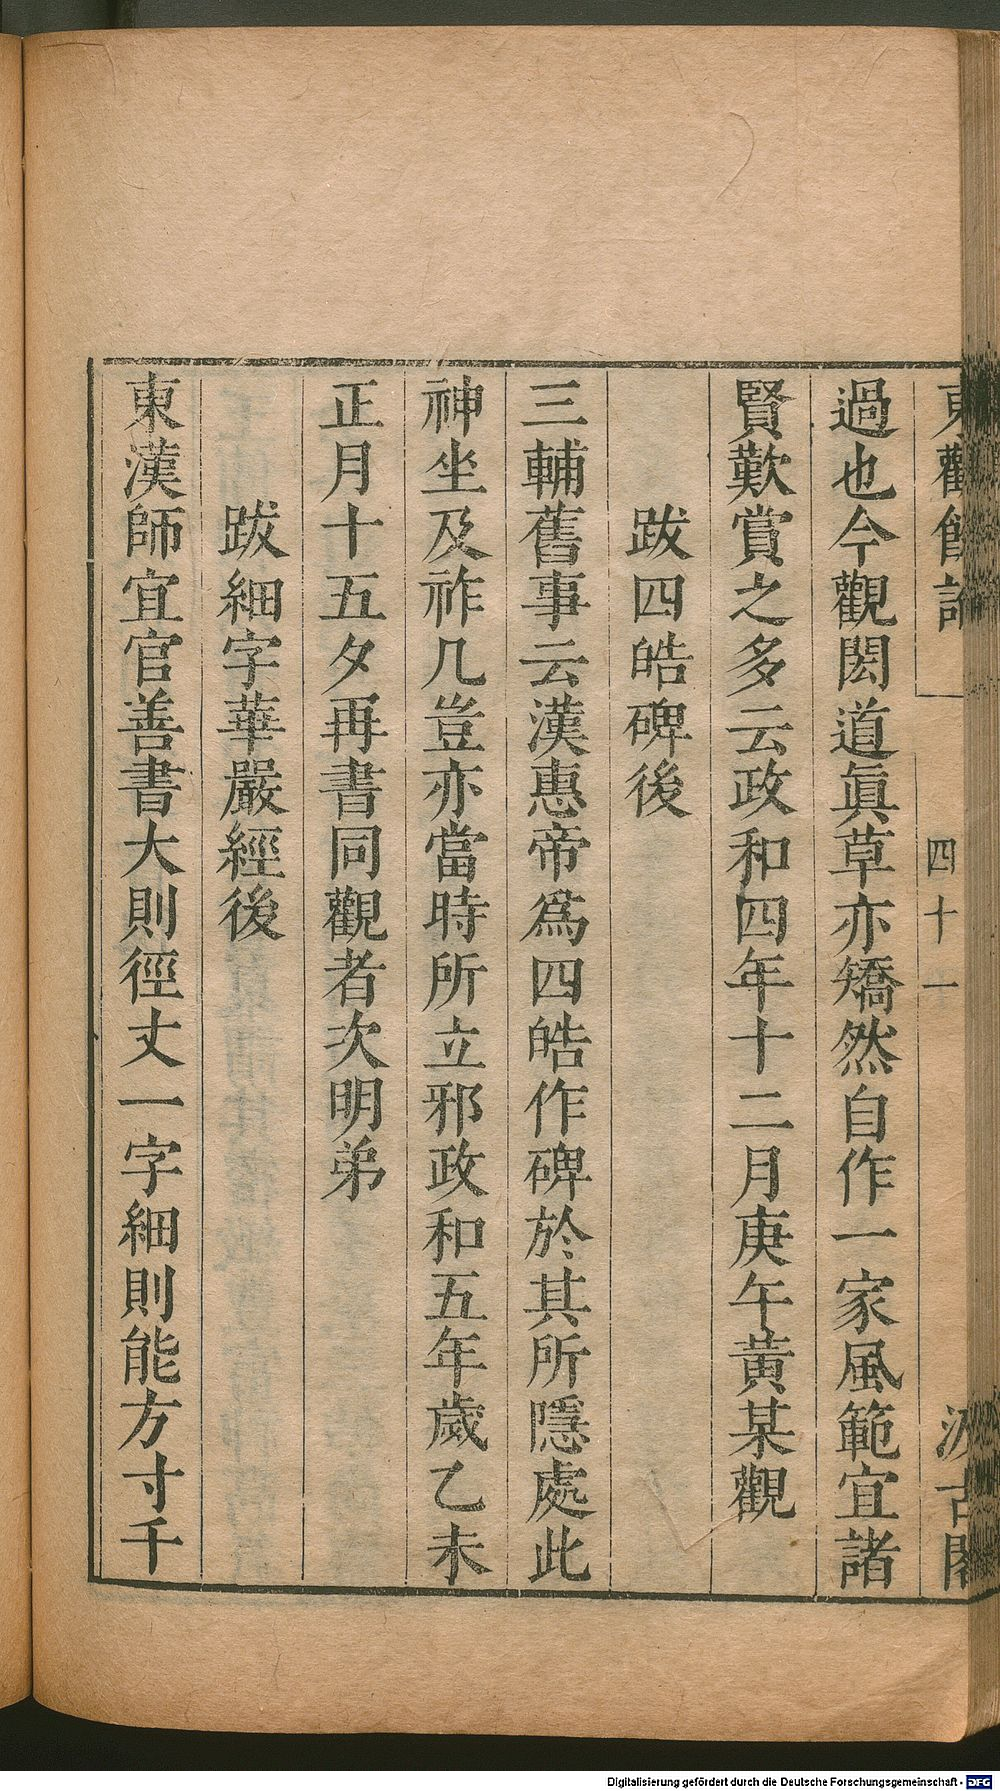 東觀餘論
四十一
汲古閣
過也今觀閎道眞草亦矯然自作一家風範宜諸
賢歎賞之多云政和四年十二月庚午黃某觀
跋四皓碑後
三輔舊事云漢惠帝爲四皓作碑於其所隱處此
神坐及祚几豈亦當時所立邪政和五年歲乙未
正月十五夕再書同觀者次明弟
跋細字華嚴經後
東漢師宜官善書大則徑丈一字細則能方寸千
Digitalisierung gefördert durch die Deutsche Forschungsgemeinschaft - DFG